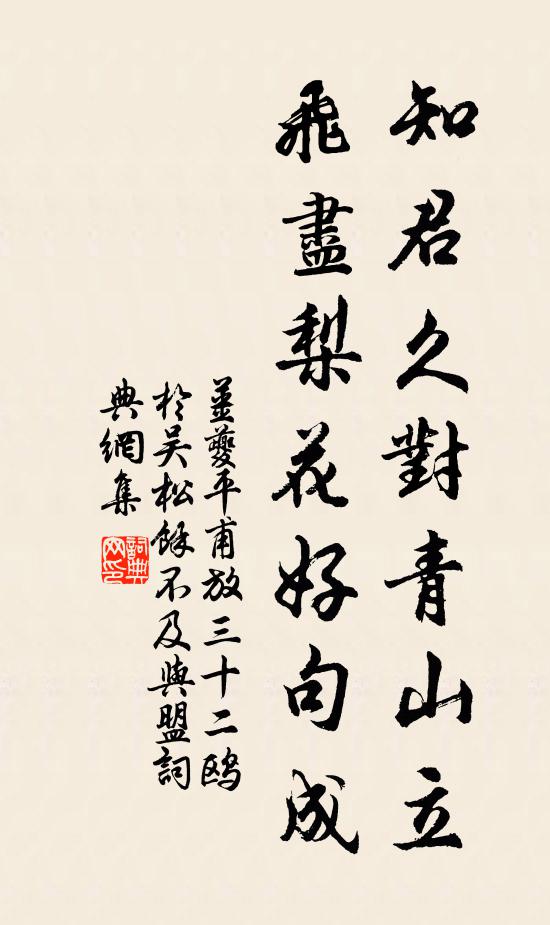 知君久對青山立
飛盡梨花好句成
姜夔平甫放三十二鸥
於吴松餘不及與盟詞
典網集
詞典網印